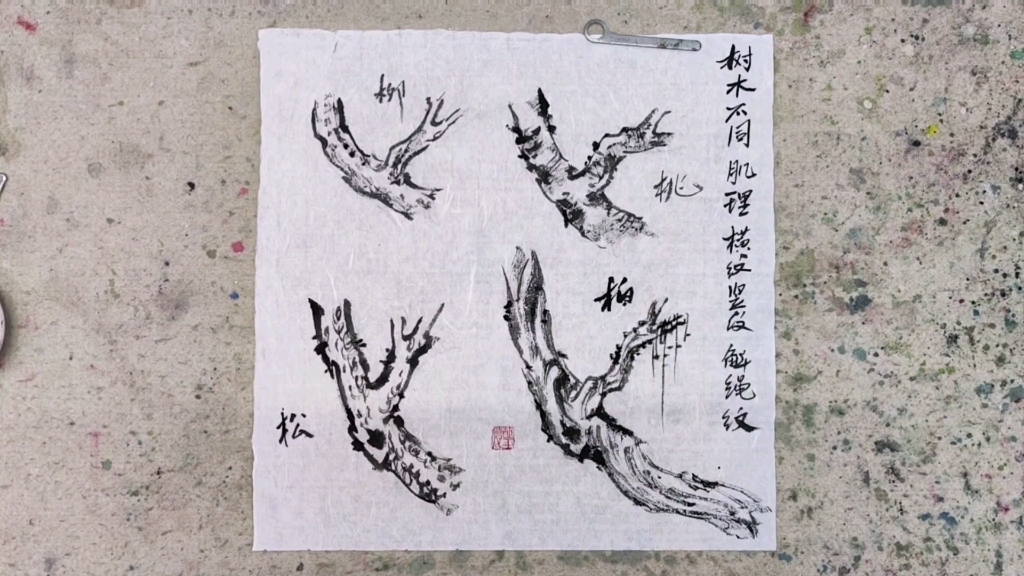 树木不同肌理横纹竖纹解绳纹
柳
桃
柏
松